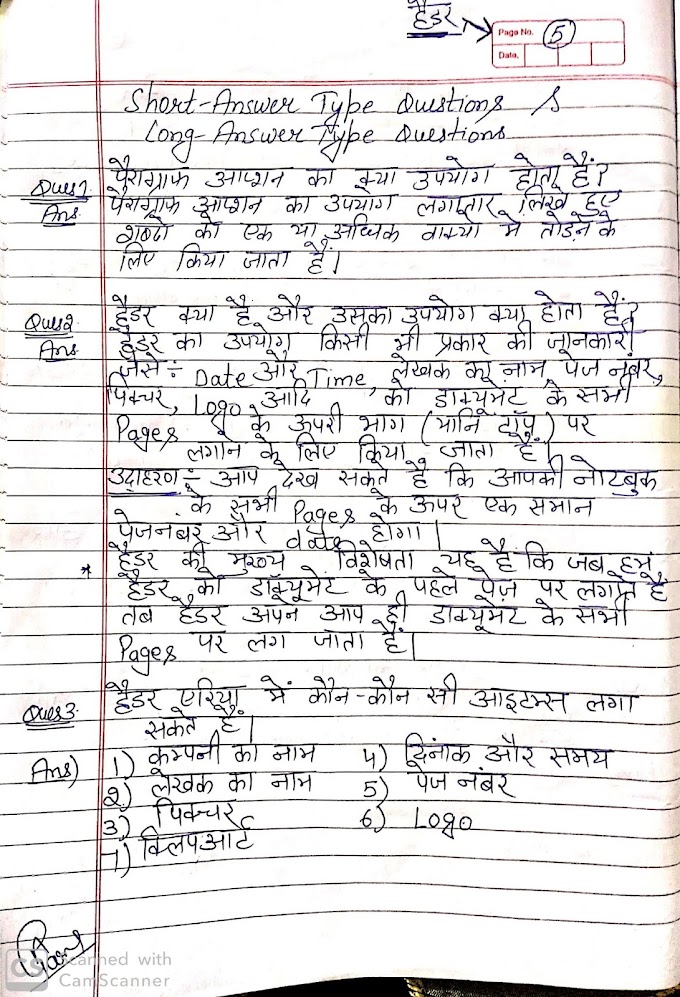 हैडर →
Page No. 5
Date.
Short-Answer Type Questions &
Long-Answer Type Questions
Ques1. पैराग्राफ आप्शन का क्या उपयोग होता हैं?
Ans पैराग्राफ आप्शन का उपयोग लगातार लिखे हुए
शब्दो को एक या अधिक वाक्यो में तोडने के
लिए किया जाता हैं।
Ques2. हैडर क्या हैं और उसका उपयोग क्या होता हैं?
Ans हैडर का उपयोग किसी भी प्रकार की जानकारी
जैसे÷ Date और Time, लेखक का नाम, पेज नंबर,
पिक्चर, Logo आदि को डाक्यूमेंट के सभी
Pages के ऊपरी भाग (यानि टॉप) पर
लगाने के लिए किया जाता हैं।
उदाहरण÷ आप देख सकते हैं कि आपकी नोटबुक
के सभी Pages के ऊपर एक समान
पेजनंबर और date होगा।
* हैडर की मुख्य विशेषता यह हैं कि जब हम
हैडर को डॉक्यूमेंट के पहले पेज पर लगाते हैं
तब हैडर अपने आप ही डाक्यूमेंट के सभी
Pages पर लग जाता हैं।
Ques3. हैडर एरिया में कौन-कौन सी आइटम्स लगा
सकते हैं।
Ans) 1) कम्पनी का नाम 4) दिनांक और समय
2) लेखक का नाम 5) पेज नंबर
3) पिक्चर 6) Logo
7) क्लिपआर्ट
CS Scanned with
CamScanner